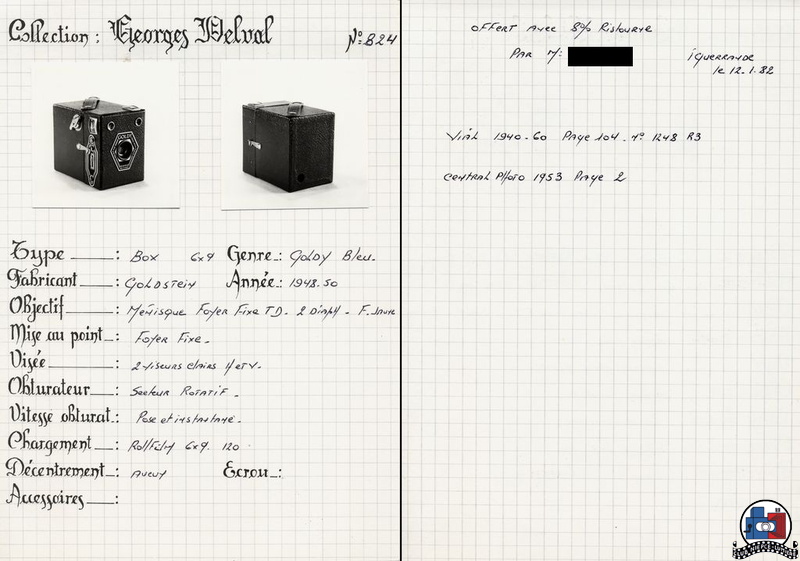 Collection : Georges Delval
N°: B24
GOLDY
Type : Box 6x9 Genre : Goldy Bleu.
Fabricant : GOLDSTEIN Année : 1948.50
Objectif : Ménisque Foyer Fixe TD - 2 Diaph - F. Jaune
Mise au point : Foyer Fixe -
Visée : 2 viseurs clairs H et V.
Obturateur : Secteur ROTATIF -
Vitesse obturat. : Pose et instantané.
Chargement : Rollfilm 6x9. 120
Décentrement : Aucun Ecrou :
Accessoires :
OFFERT AVEC 8% Ristourne
PAR M: iguerande
le 12.1.82
Vial 1940-60 Page 104. n° 1248 R3
Central Photo 1953 Page 2